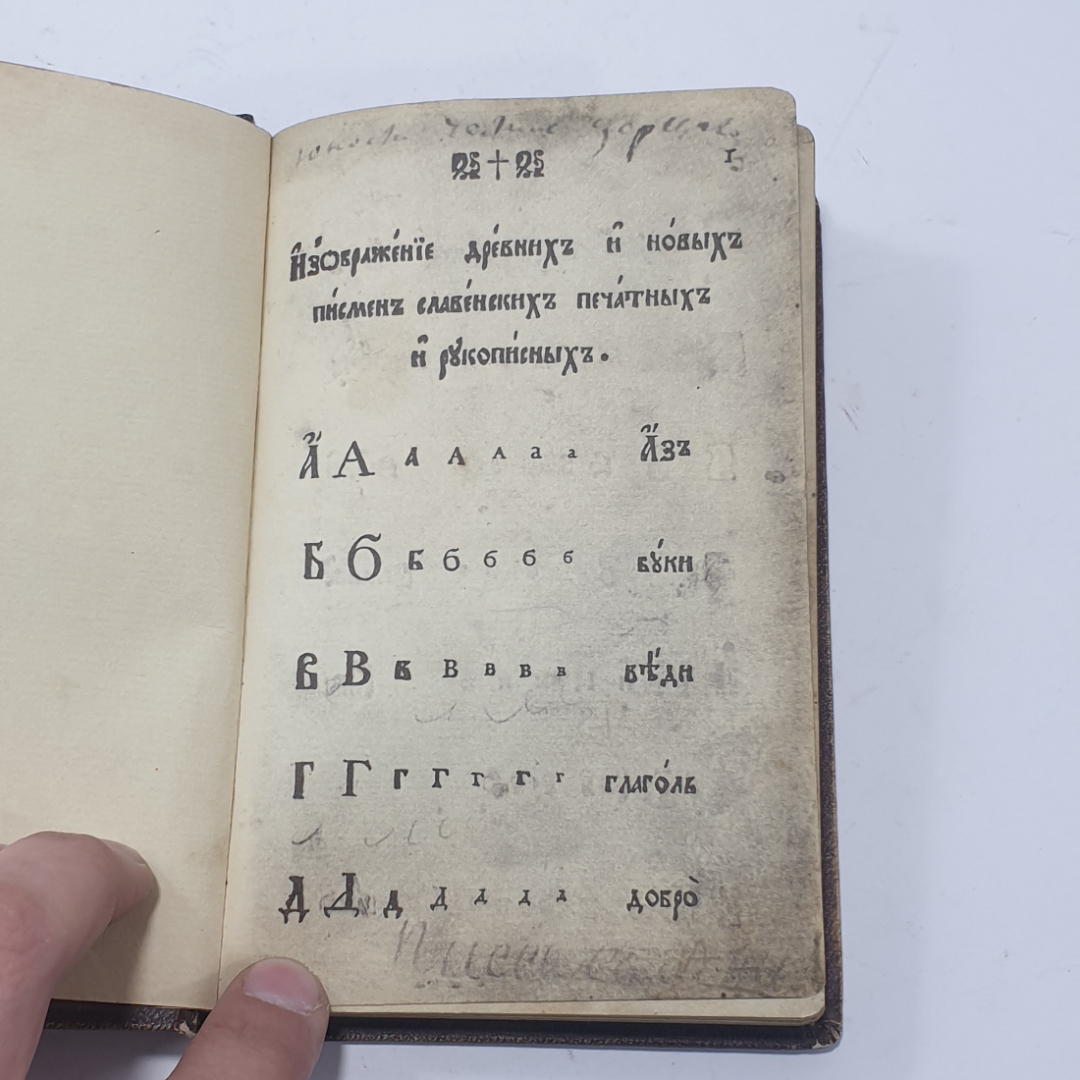 1
И҆зѡбраже́нїе дре́внихъ и҆ но́выхъ
пи́сменъ славе́нскихъ печа́тныхъ
и҆ рꙋкопи́сныхъ.
А҆́ А а А А а а А҆́зъ
Б Б б б б б б бꙋ́ки
В В в В в в в вѣ́ди
Г Г г Г г г г глаго́ль
Д Д д д д д д добро̀